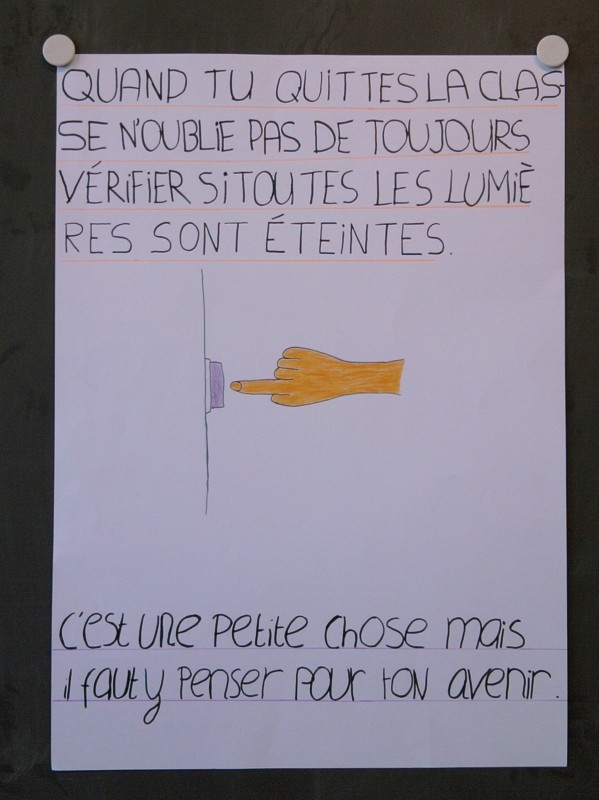 QUAND TU QUITTES LA CLAS
SE N'OUBLIE PAS DE TOUJOURS
VÉRIFIER SI TOUTES LES LUMIÈ
RES SONT ÉTEINTES.
C'est une petite chose mais
il faut y penser pour ton avenir.